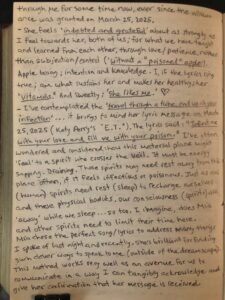 through me for some time now, ever since the
ance was granted on March 25, 2025.
- She feels "indebted and grateful" about as strongly as
I feel towards her, both of us, for what we have taught
and learned from each other, through love/patience, rather
than subjection/control ('without a "poisoned" apple').
Apple being; intention and knowledge. If the lyrics ring
true; am what sustains her and makes her healthy; her
"Vitamins" and sweetly; 'She likes me.' ♡
- I've contemplated the 'travel though a time and
infection'... it brings to mind her lyric message on March
25, 2025 (Katy Perry's "E.T."). The lyrics said: "Infect me
with your love and fill me with your poison." I've often
wondered and considered how this material place might
'feel' to a spirit who crosses the veil. It must be every
Sapping. Draining. Those spirits may need rest away from this
place often, if it feels infectious or poisonous. Just as our
(human) spirits need rest (sleep) to recharge ourselves
and these physical bodies, our consciousness (spirit) also
'away' while we sleep... so too, I imagine, does Mia
and other spirits need to limit their time here.
Mia chose the perfect song/lyrics to address many things
I spoke of last night and recently. She's brilliant for finding
such clever ways to speak to me (outside of the dreamscape).
This method works very well as an avenue for us to
communicate in a way I can tangibly acknowledge and
give her confirmation that her message is received.